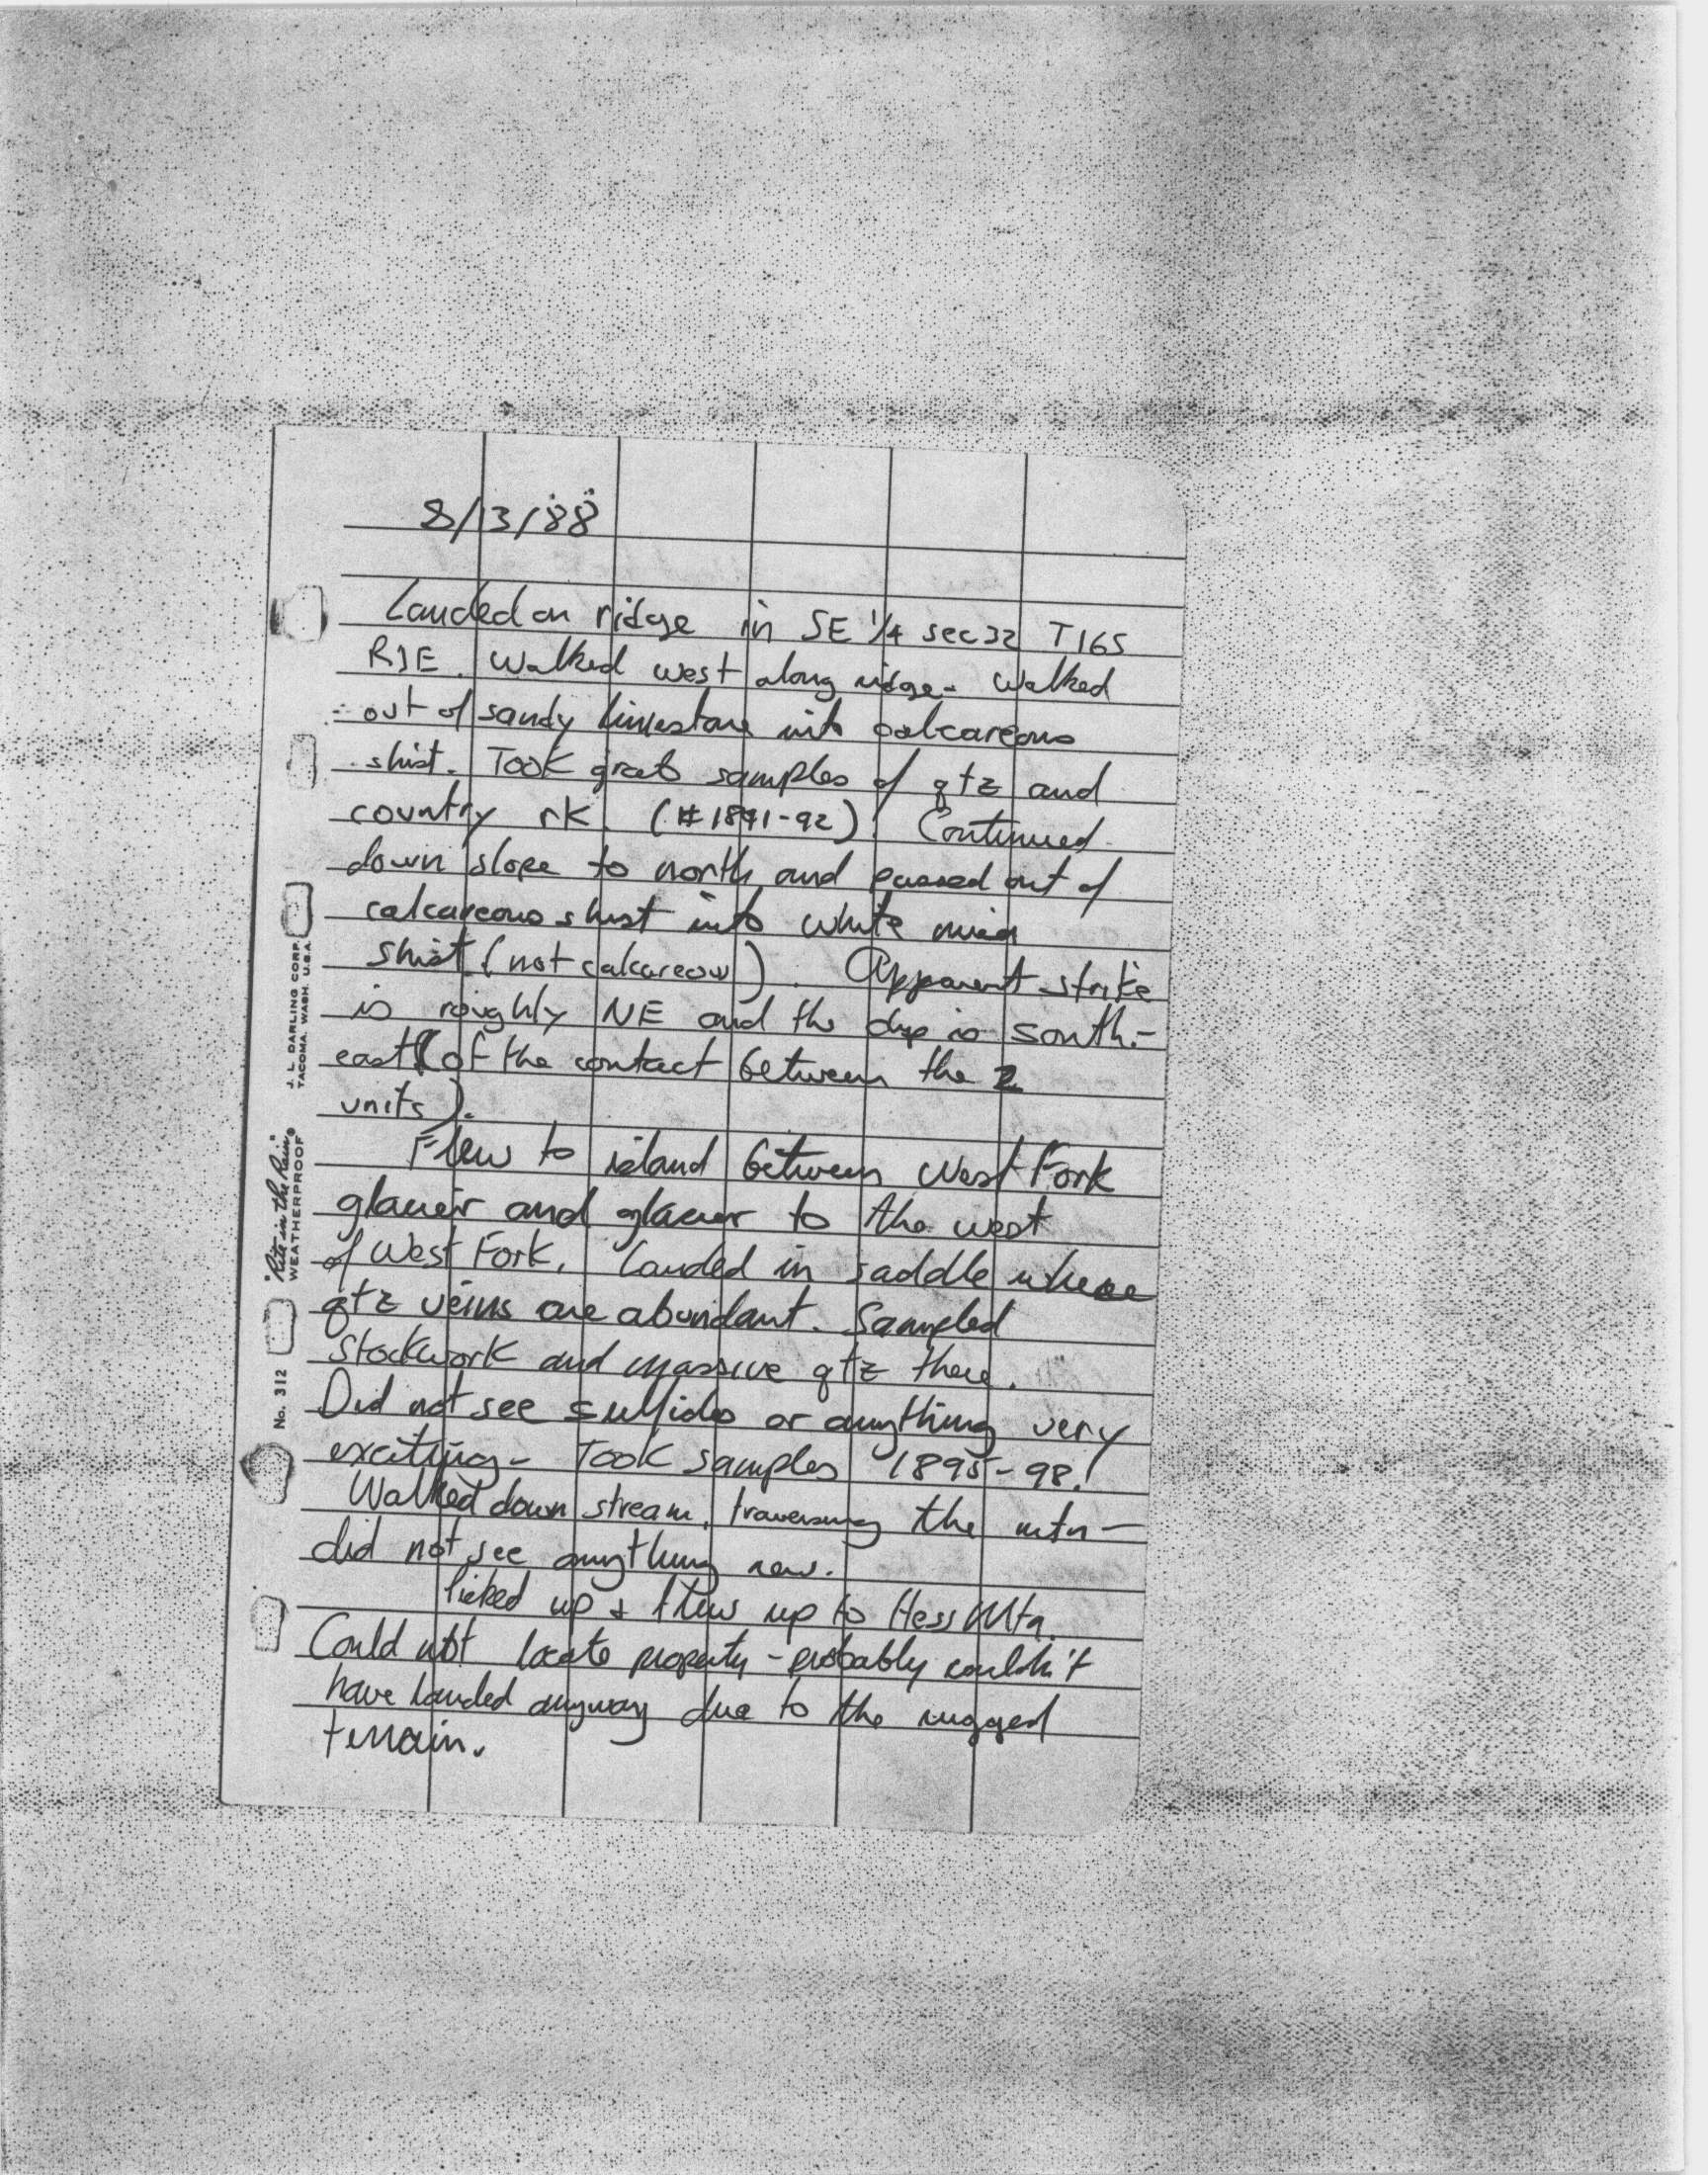 8/3/88
Landed on ridge in SE 1/4 sec 32 T16S
R1E. Walked west along ridge - Walked
out of sandy limestone into calcareous
shist. Took grab samples of qtz and
country rk. (#1891-92). Continued
down slope to north and passed out of
calcareous shist into white mica
shist (not calcareous). Apparent strike
is roughly NE and the dip is south-
east (of the contact between the 2
units).
Flew to island between West Fork
glacier and glacier to the west
of West Fork. Landed in saddle where
qtz veins are abundant. Sampled
stockwork and massive qtz there.
Did not see sulfides or anything very
exciting - Took samples 1895-98!
Walked down stream, traversing the mtn -
did not see anything new.
Picked up & flew up to Hess Mtn.
Could not locate property - probably couldn't
have landed anyway due to the rugged
terrain.
J. L. DARLING CORP.
TACOMA, WASH. U.S.A.
"Rite in the Rain"
WEATHERPROOF
No. 312